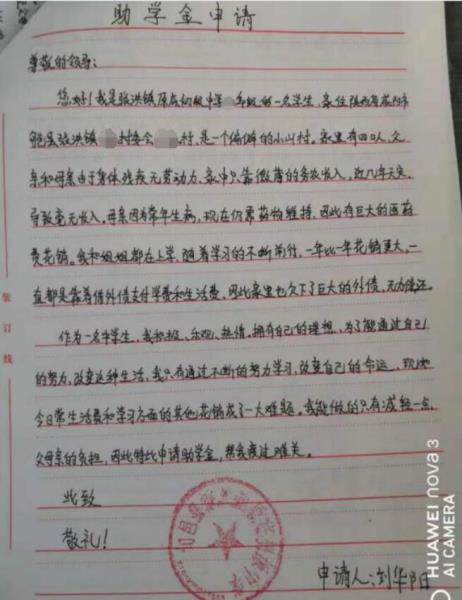 助学金申请
尊敬的领导：
您好！我是张洪镇原底初级中学年级的一名学生，家住陕西省咸阳市
县张洪镇村委会村，是一个偏僻的小山村。家里有四口人，父
亲和母亲由于身体残疾无劳动力，家中只靠微薄的务农收入，近几年天灾
导致毫无收入。母亲因为常年生病，现在仍需药物维持，因此有巨大的医药
费花销。我和姐姐都在上学，随着学习的不断前行，一年比一年花销更大，一
直都是靠着借外债支付学费和生活费，因此家里也欠下了巨大的外债，无力偿还。
作为一名中学生，我积极、乐观、热情。拥有自己的理想，为了能通过自己
的努力，改变这种生活，我只有通过不断的努力学习，改变自己的命运，现如
今日常生活费和学习方面的其他花销成了一大难题。我能做的只有减轻一点
父母亲的负担，因此特此申请助学金，帮我度过难关。
此致
敬礼！
申请人：刘华阳
装订线
HUAWEI nova 3
AI CAMERA